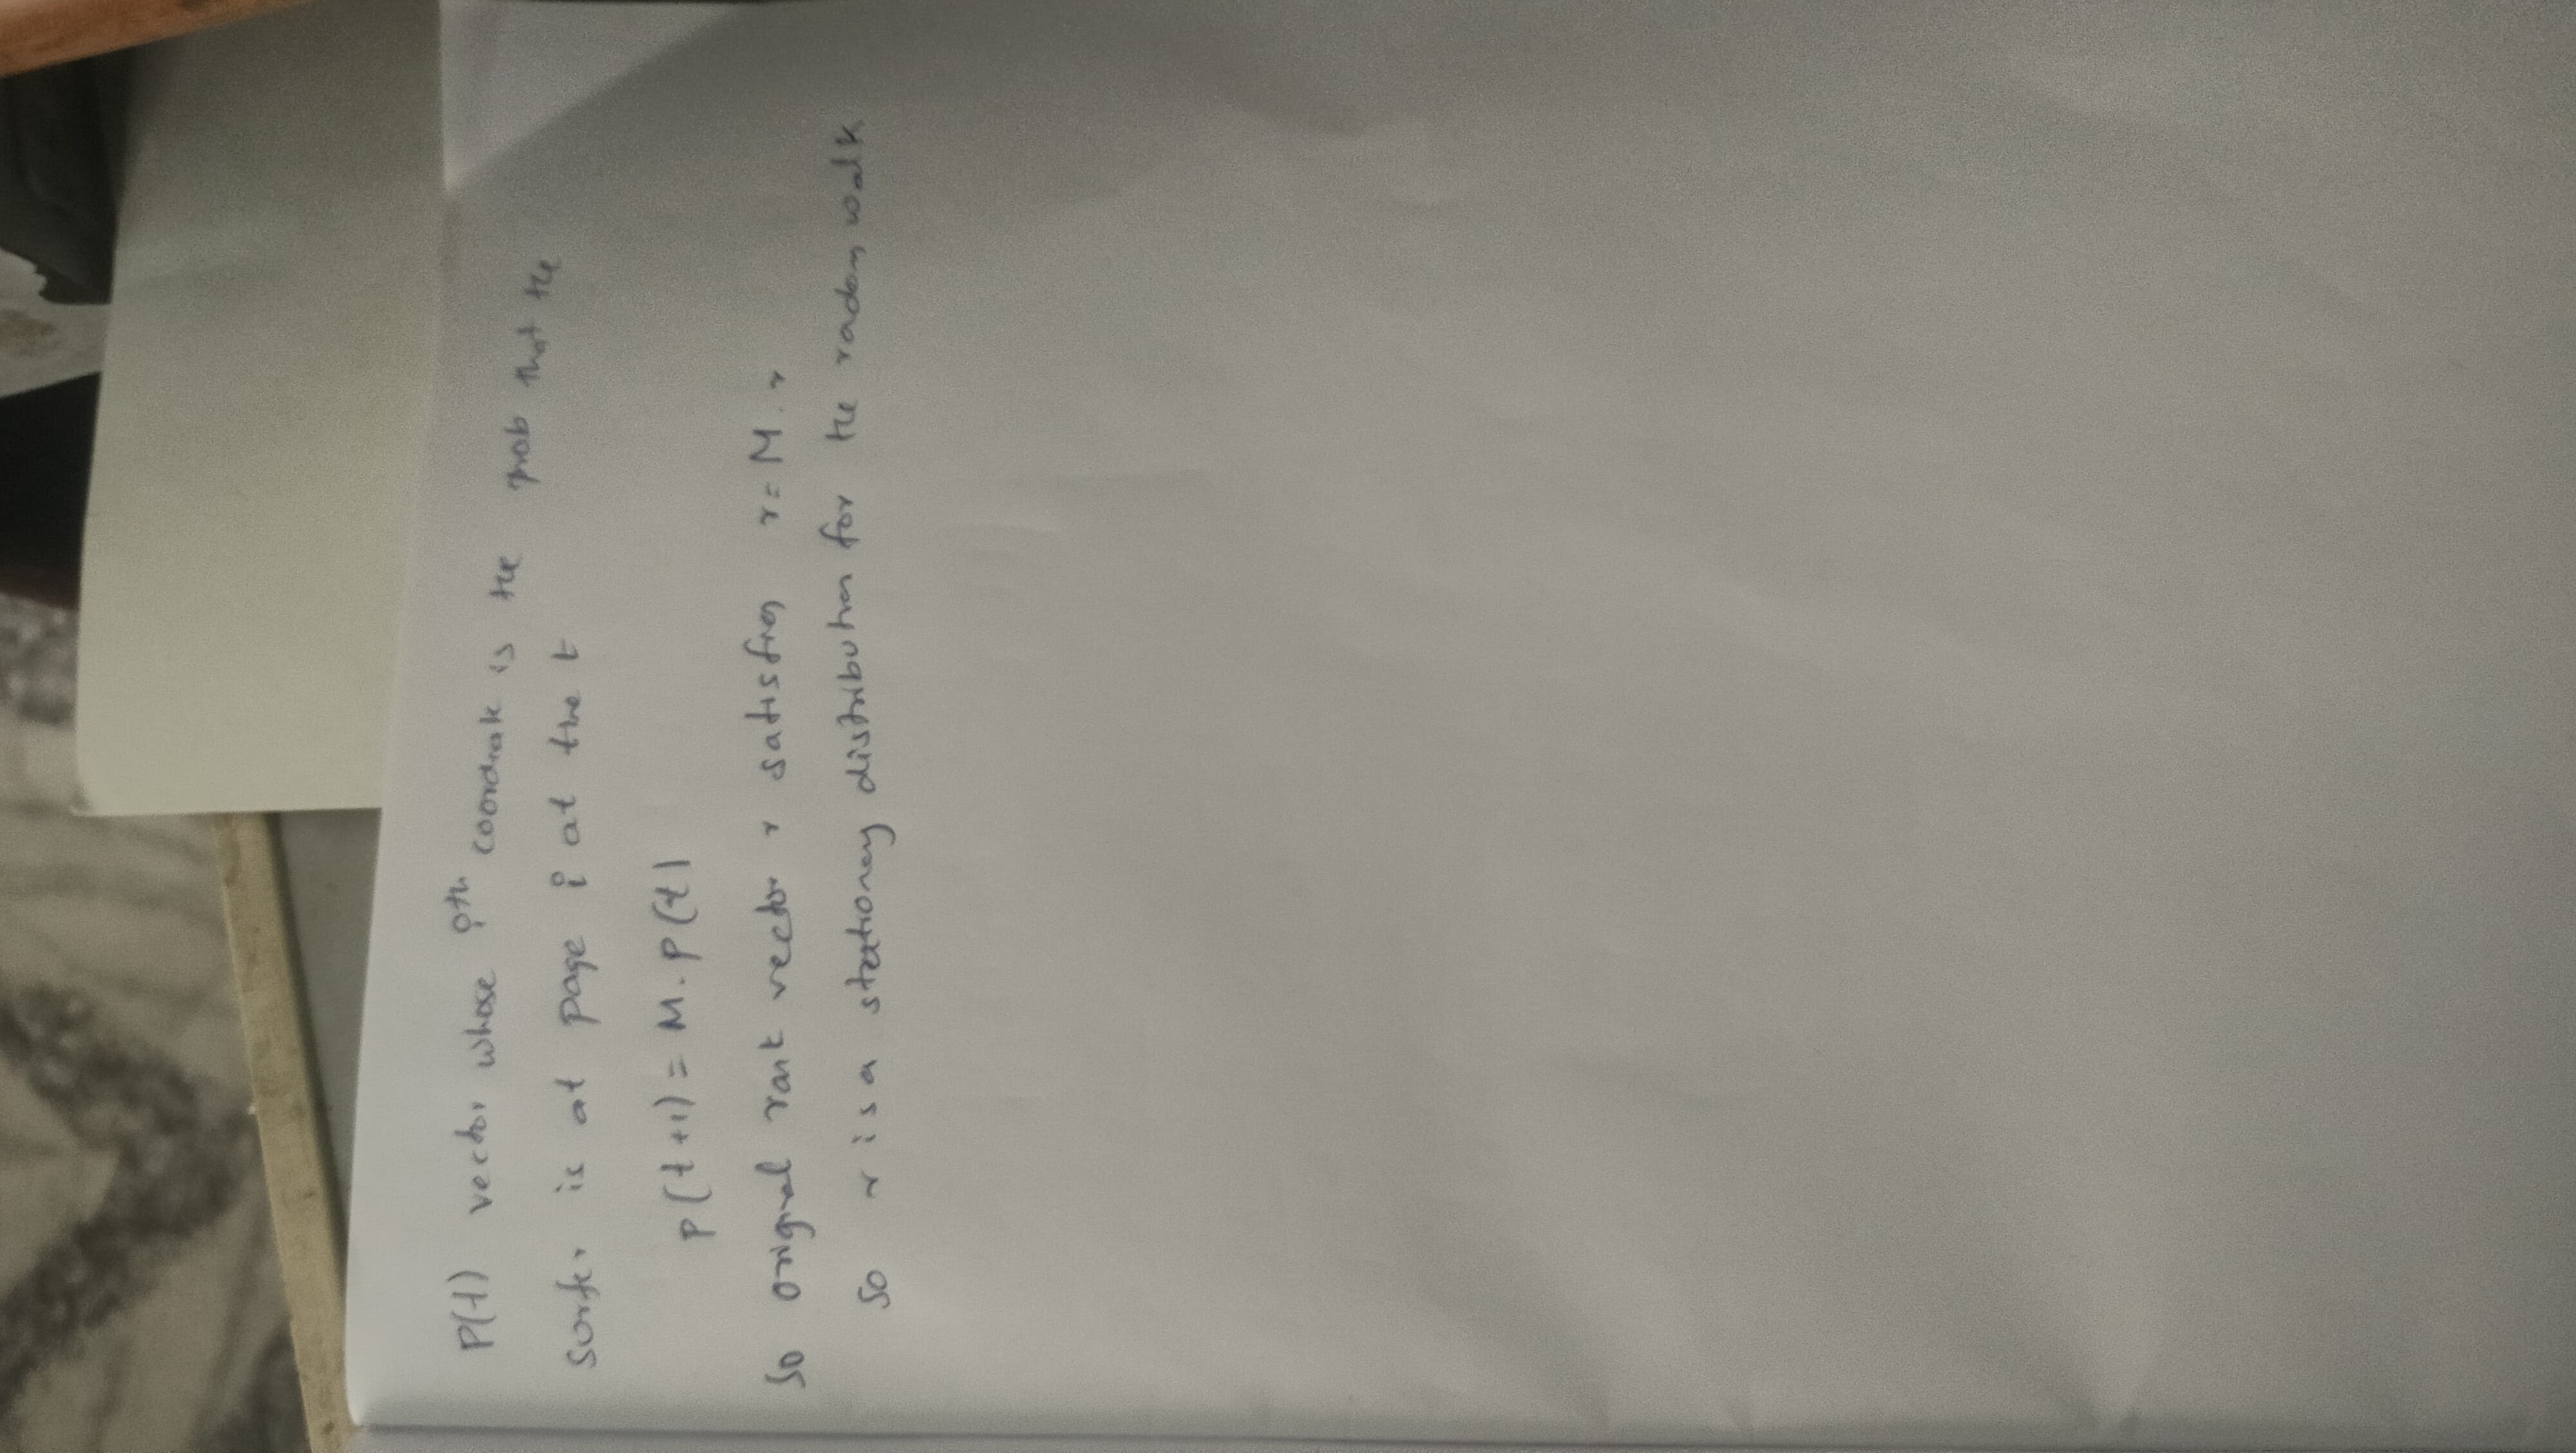 P(t) vector whose ith coordinate is the prob that the
surfer is at page i at the t
P(t+1) = M.P(t)
So original rank vector r satisfies r = M.r
So r is a stationary distribution for the random walk